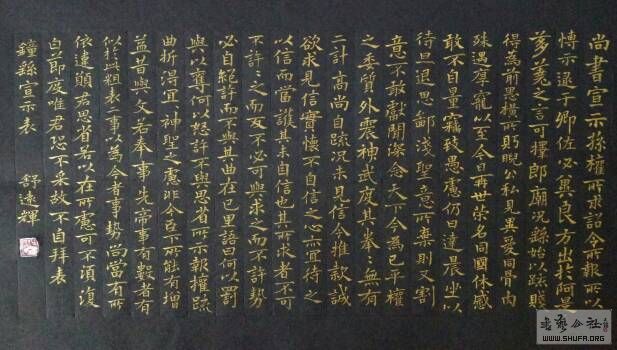 尚書宣示孫權所求詔令所報所以
博示逮于卿佐必冀良方出於阿是
芻蕘之言可擇郎廟況繇始以疏賤
得為前恩橫所盼睨公私見異愛同骨肉
殊遇厚寵以至今日再世榮名同國休感
敢不自量竊致愚慮仍日達晨坐以
待旦退思鄙淺聖意所棄則又割
意不敢獻聞深念天下今為已平權
之委質外震神武度其拳〻無有
二計高尚自疏況未見信今推款誠
欲求見信實懷不自信之心亦宜待之
以信而當護其未自信也其所求者不可
不許〻之而反不必可與求之而不許勢
必自絕許而不與其曲在己里語曰何以罰
與以奪何以怒許不與思省所示報權疏
曲折得宜〻神聖之慮非今臣下所能有增
益昔與文若奉事先帝事有數者有
似於此粗表二事以為今者事勢尚當有所
依違願君思省若以在所慮可不須復
白節度唯君恐不采故不自拜表
鍾繇宣示表 舒遠輝
書藝公社
WWW.SHUFA.ORG